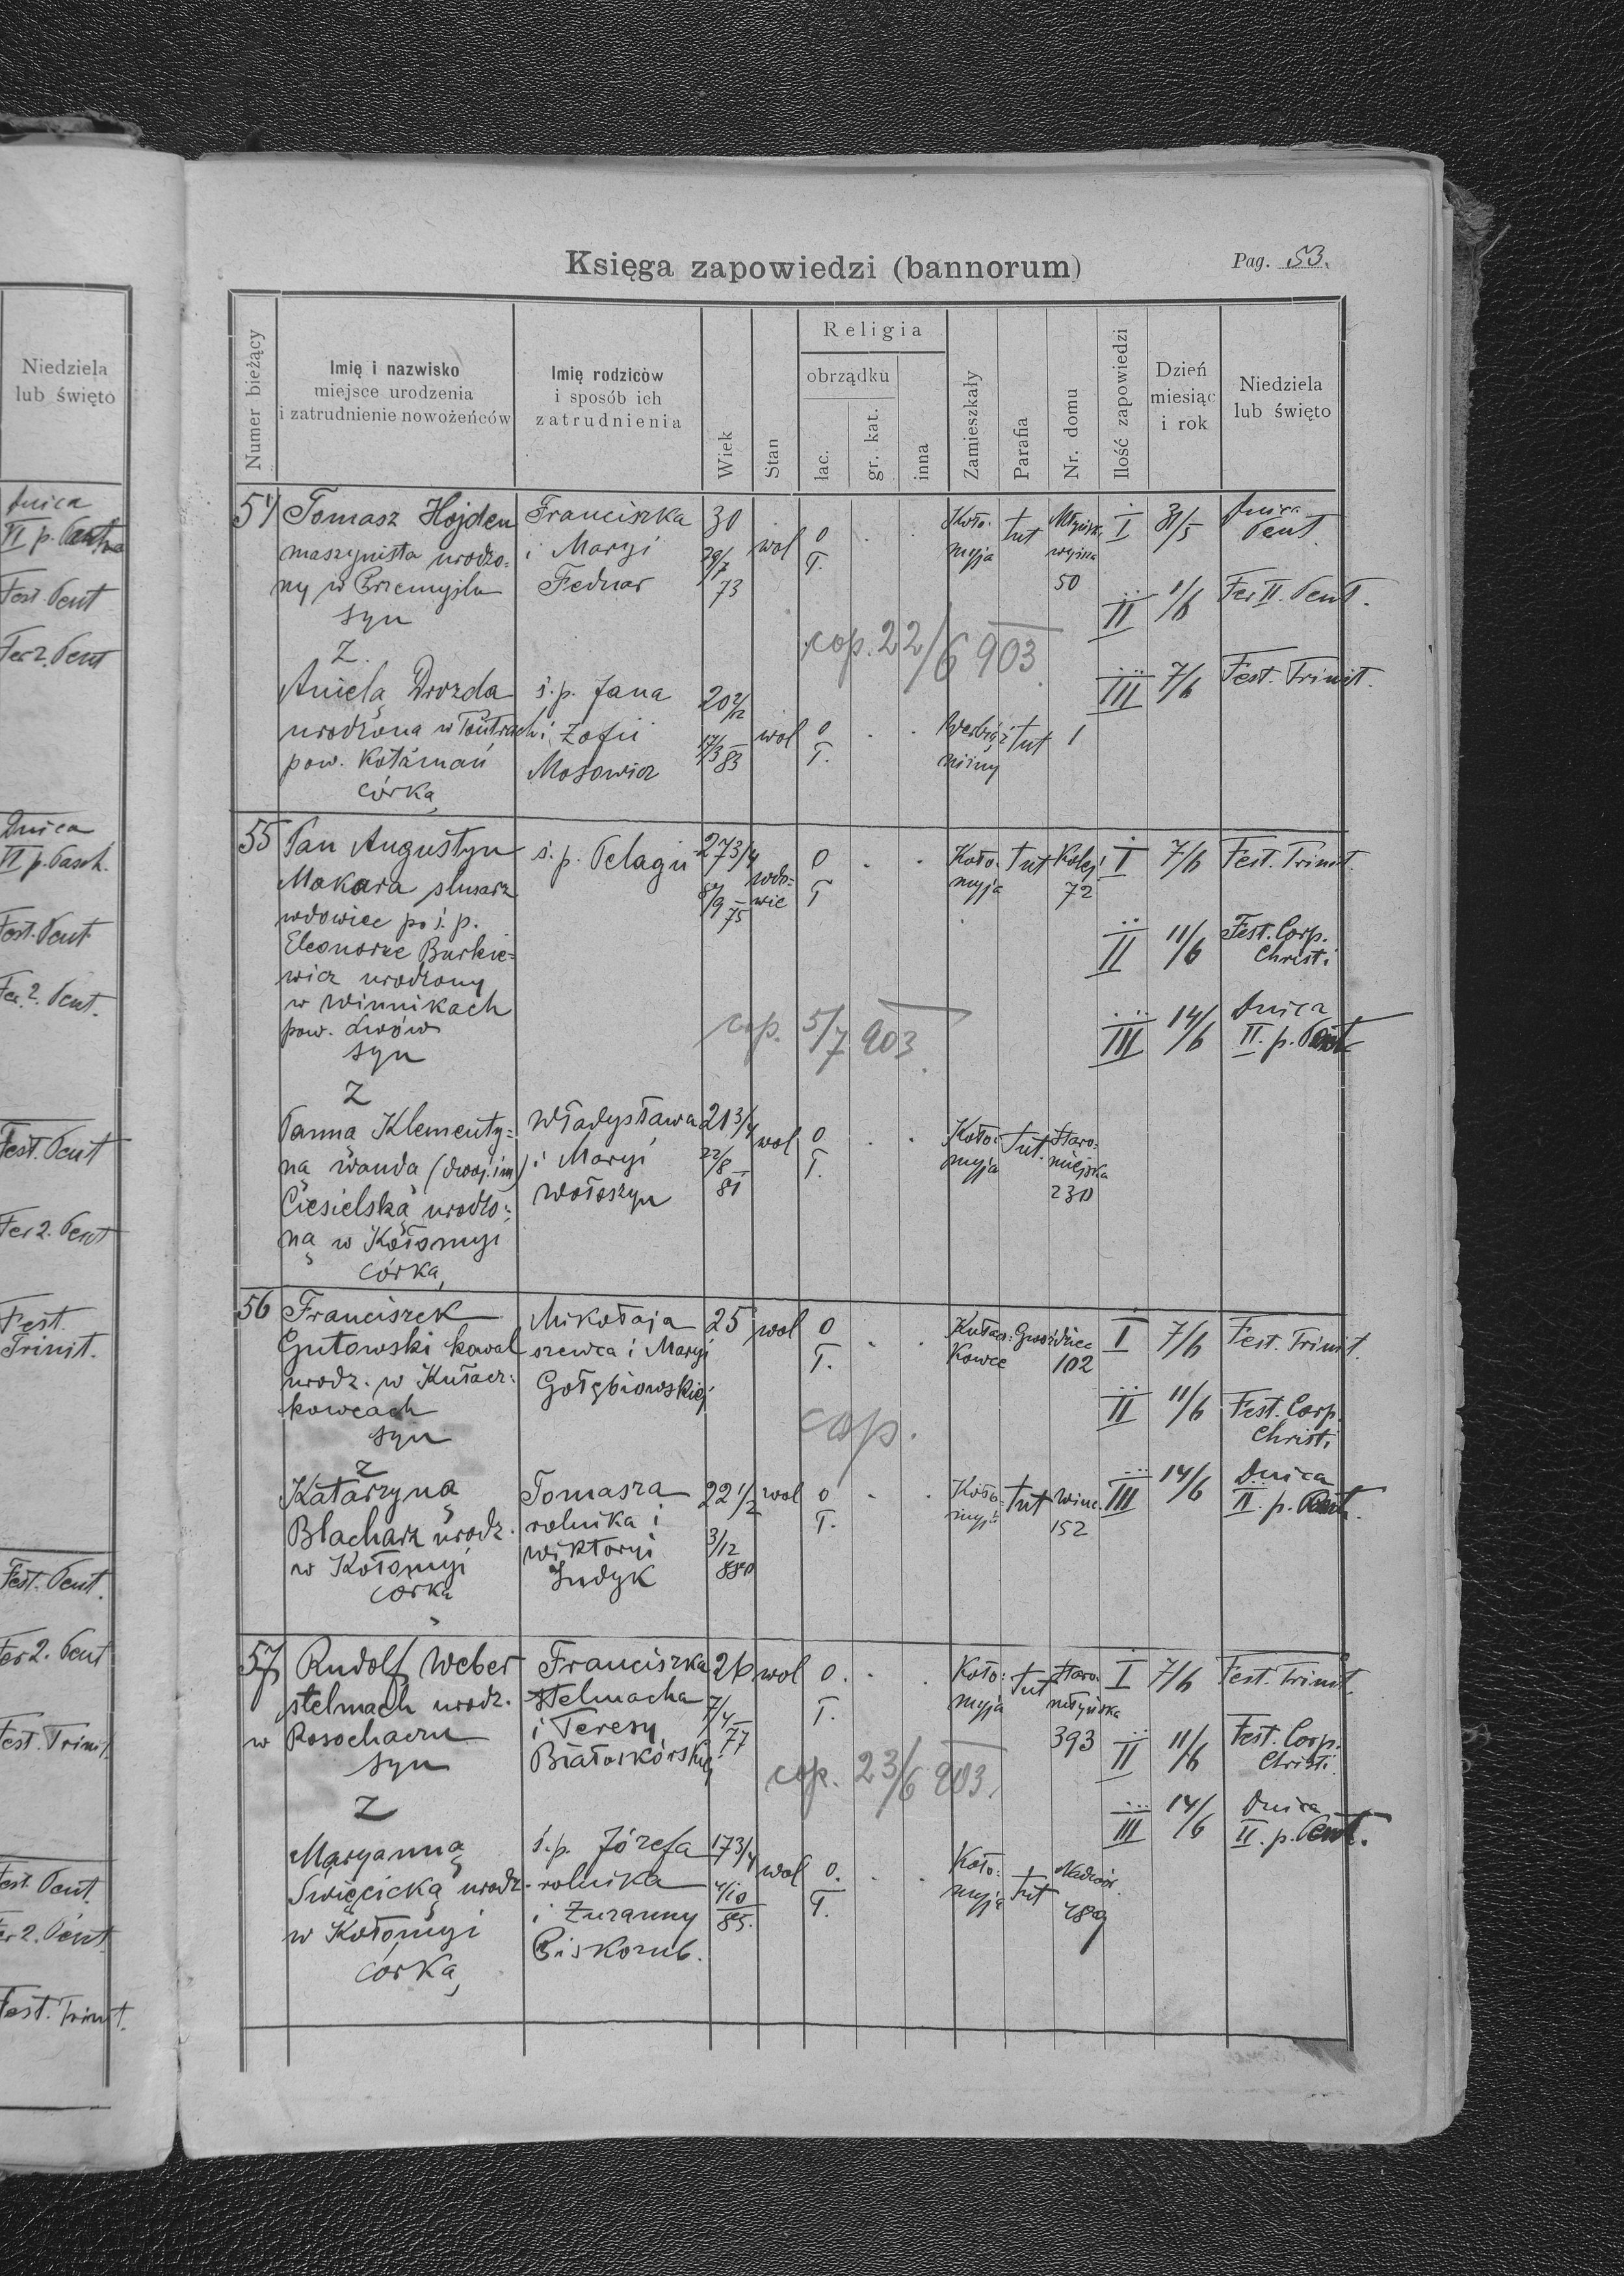 Księga zapowiedzi (bannorum)
Pag. 53.
Numer bieżący
Imię i nazwisko
miejsce urodzenia
i zatrudnienie nowożeńców
Imię rodziców
i sposób ich
zatrudnienia
Wiek
Stan
Religia
obrządku
łac.
gr. kat.
inna
Zamieszkały
Parafia
Nr. domu
Ilość zapowiedzi
Dzień
miesiąc
i rok
Niedziela
lub święto
Niedziela
lub święto
Dnica
Fest. Pent
Fer 2. Pent
Dnica
VI p. Pasch.
Fest. Pent
Fer 2. Pent.
Fest. Pent
Fer 2. Pent
Fest.
Trinit.
Fest. Pent.
Fer 2. Pent
Fest. Trinit.
Fest. Pent.
Fer 2. Pent.
Fest. Trinit.
Tomasz Hojden
maszynista urodzo=
ny w Przemyślu
syn
z
Franciszka
i Maryi
Fednar
30
29/7
73
wol
O
T.
Koło-
myja
tut
wyższa
50
I 31/5 Dnica Pent.
II 1/6 Fer II. Pent.
III 7/6 Fest. Trinit.
cop. 22/6 903.
Anielą Drozda
urodzona w
pow.
córką
ś. p. Jana
i Zofii
Mosowicz
20 2/12
17/3 83
wol
O
T.
Werbiąż
niżny
tut
1
55
Pan Augustyn
Makara ślusarz
wdowiec po ś. p.
Eleonorze Burkie=
wicz urodzony
w Winnikach
pow. Lwów
syn
z
ś. p. Pelagii
27 3/4
75
wdo=
wiec
O
T
Koło-
myja
tut
Kolej.
72
I 7/6 Fest. Trinit.
II 11/6 Fest. Corp.
Christi
III 14/6 Dnica
II. p. Pent.
cop. 5/7 903.
Panną Klementy=
ną Wandą (dwoj. im)
Ciesielską urodzo=
ną w Kołomyi
córką
Władysława
i Maryi
Wołoszyn
21 3/4
22/8
81
wol
O
T.
Koło-
myja
tut.
Staro=
miejska
230
56
Franciszek
Gutowski kowal
urodz. w Kułacz=
kowcach
syn
z
Mikołaja
szewca i Maryi
Gołębiowskiej
25
wol
O
T.
Kułacz=
kowce
Gwoździec
102
I 7/6 Fest. Trinit.
II 11/6 Fest. Corp.
Christi
III 14/6 Dnica
II. p. Pent.
cop.
Katarzyną
Blacharz urodz.
w Kołomyi
córką
Tomasza
rolnika i
Wiktoryi
Indyk
22 1/2
3/12
880
wol
O
T.
Koło-
myja
tut
Winc.
152
57
Rudolf Weber
stelmach urodz.
w Rosochaczu
syn
z
Franciszka
stelmacha
i Teresy
Białoskórskiej
26
7/4
77
wol
O.
T.
Koło=
myja
tut
Staro=
młyńska
393
I 7/6 Fest. Trinit.
II 11/6 Fest. Corp.
Christi
III 14/6 Dnica
II. p. Pent.
cop. 23/6 903.
Maryanną
Święcicką urodz.
w Kołomyi
córką
ś. p. Józefa
rolnika
i Zuzanny
Piskozub.
17 3/4
4/10
85.
wol
O.
T.
Koło=
myja
tut
489